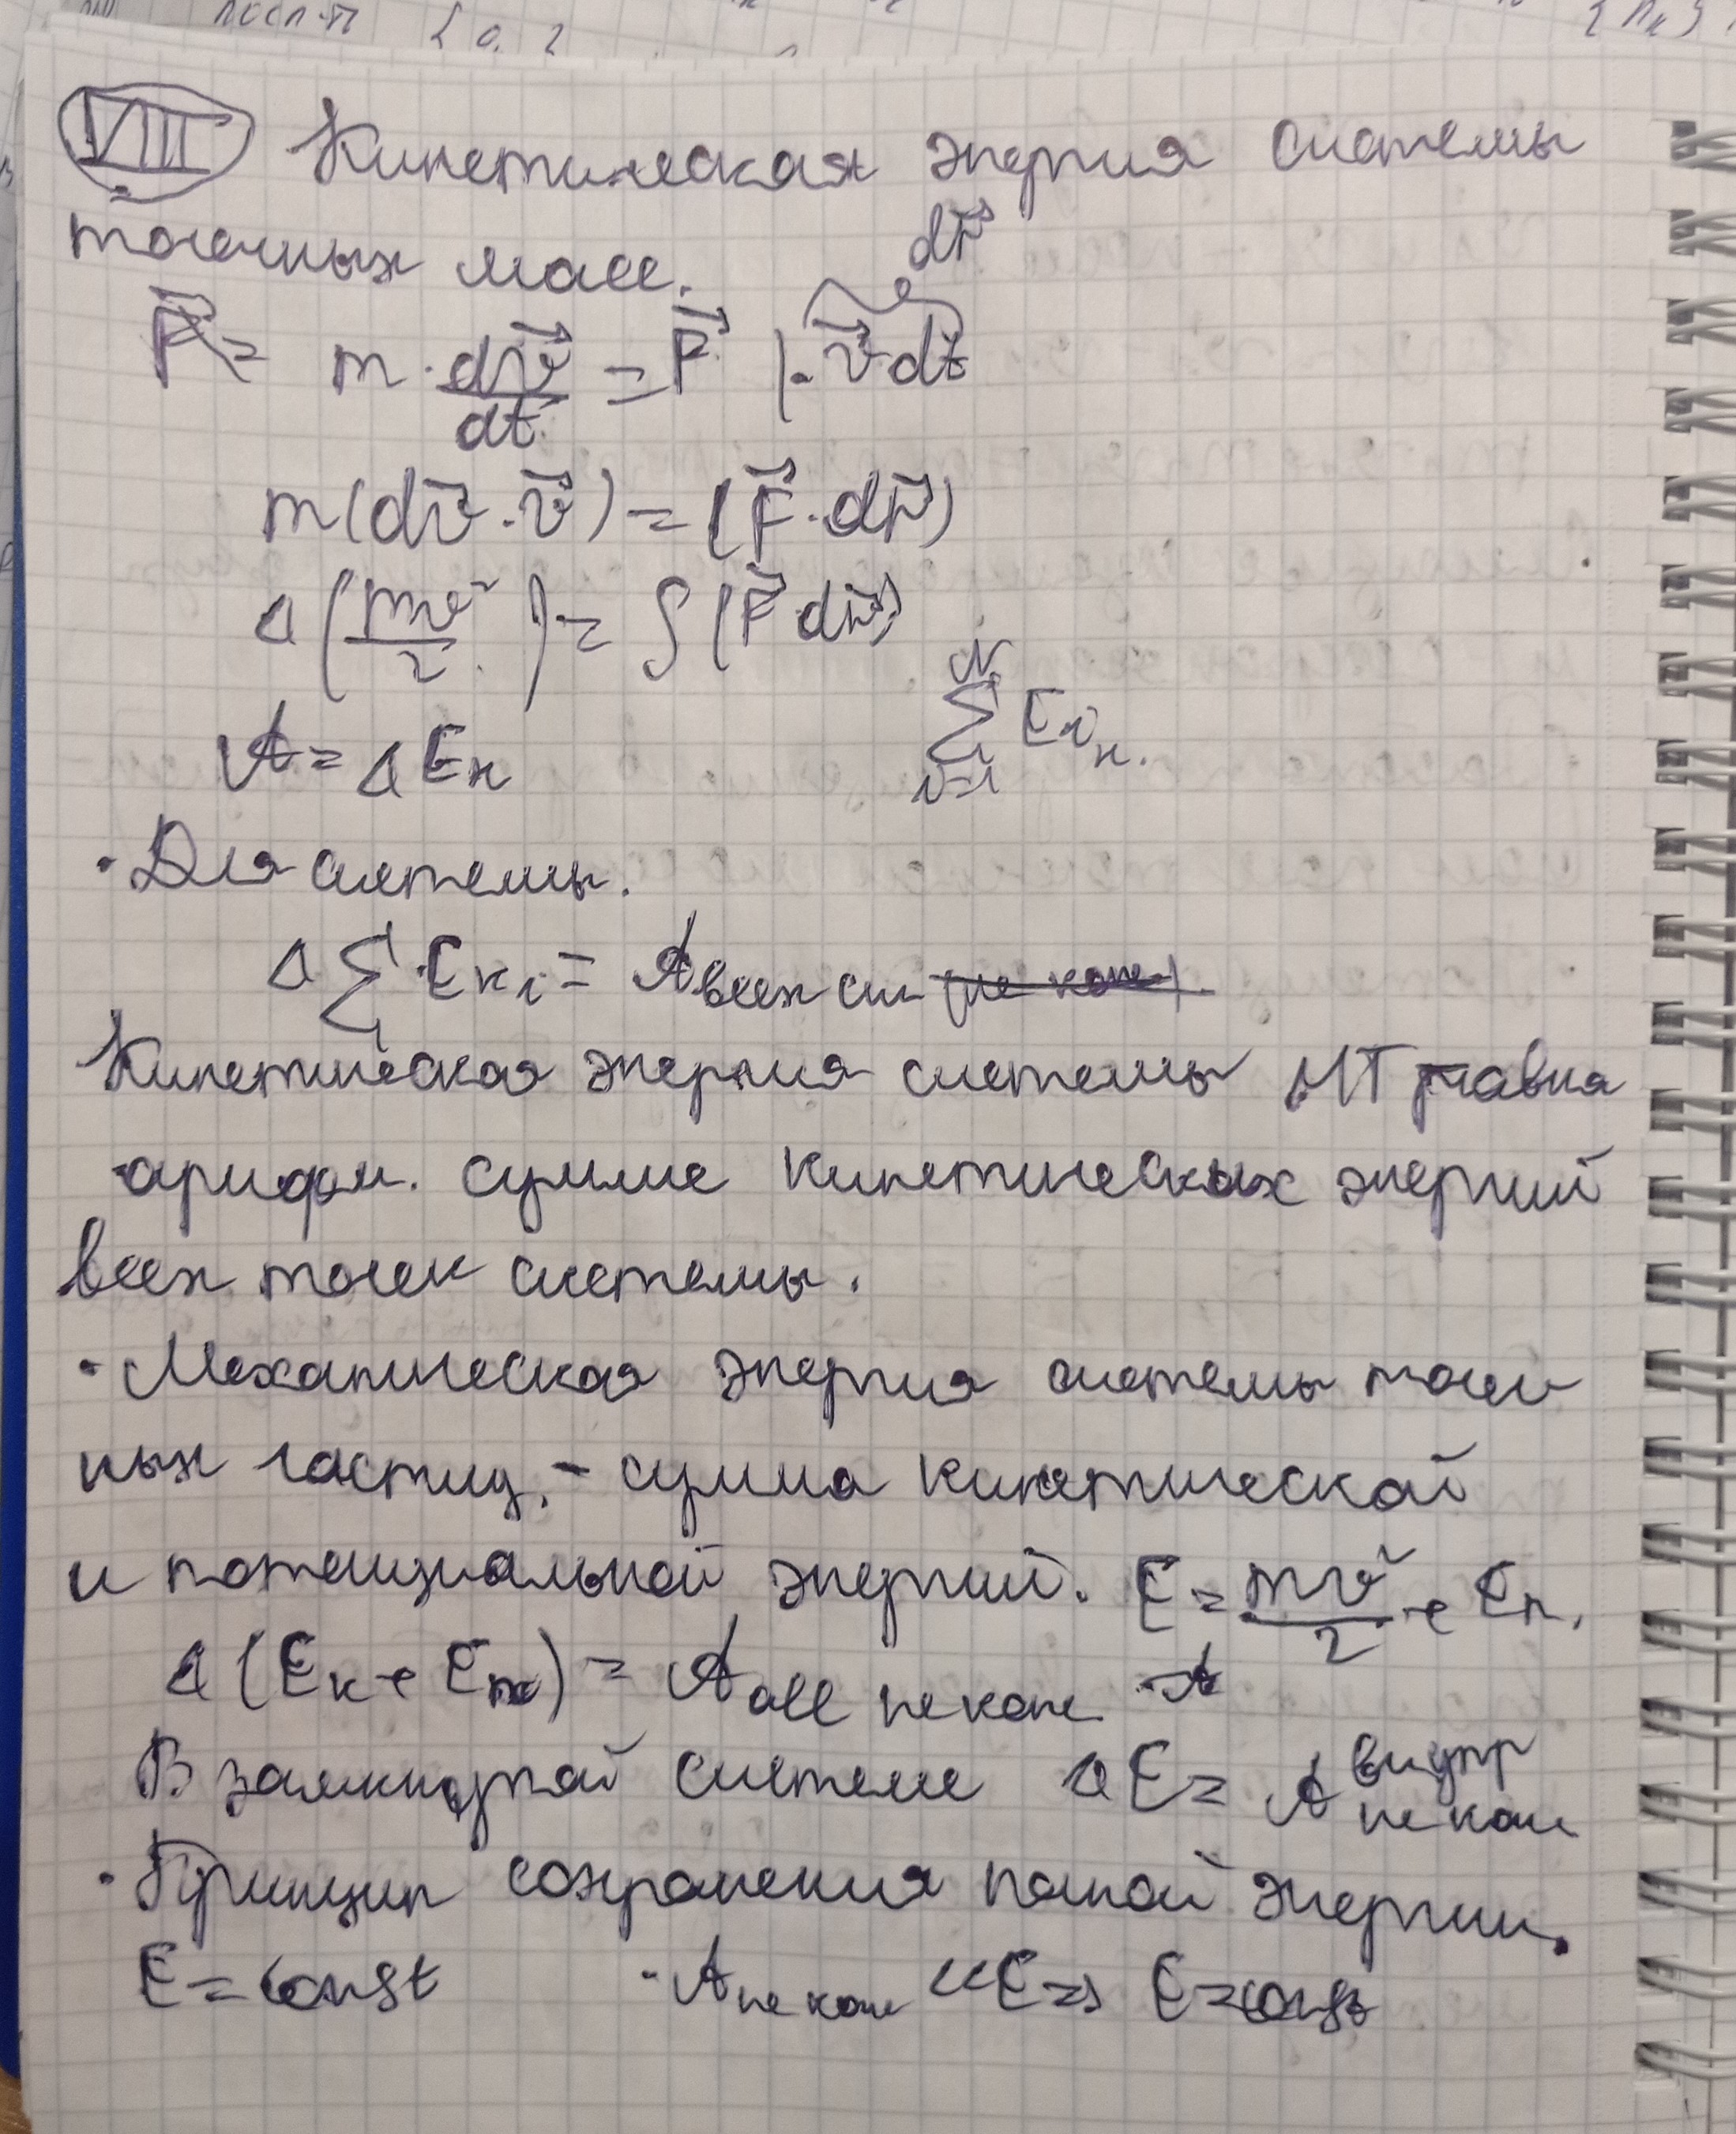 посл-п
VIII Кинетическая энергия системы
точечных масс.
dr⃗
F⃗ = m · dv⃗/dt = F⃗ | · v⃗dt
m(dv⃗ · v⃗) = (F⃗ · dr⃗)
Δ(mv²/2) = ∫(F⃗ dr⃗)
A = ΔEк
∑ᵢ₌₁ᴺ Eiк.
· Для системы.
Δ∑Eкi = Aвсех сил (не конс)
Кинетическая энергия системы МТ равна
арифм. сумме кинетических энергий
всех точек системы.
· Механическая энергия системы точеч
ных частиц, - сумма кинетической
и потенциальной энергий. E = mv²/2 + Eп.
Δ(Eк + Eп) = Aall не конс - A
В замкнутой системе ΔE = Aвнутр не конс
· Принцип сохранения полной энергии.
E = const · Aне конс << E => E = const